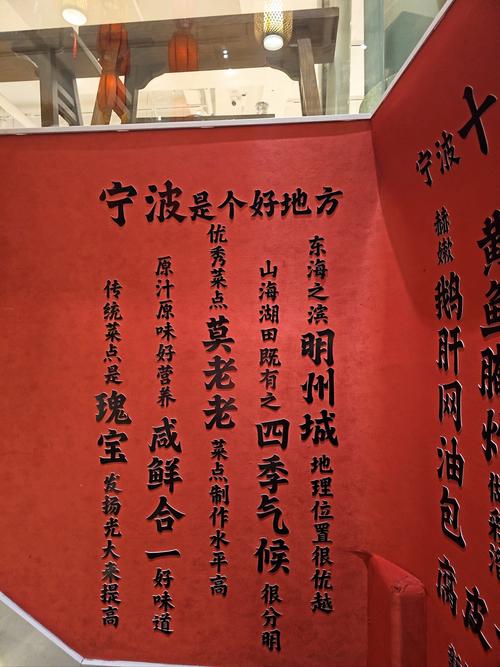 宁波是个好地方
东海之滨明州城地理位置很优越
山海湖田既有之四季气候很分明
优秀菜点莫老老菜点制作水平高
原汁原味好营养咸鲜合一好味道
传统菜点是瑰宝发扬光大来提高
宁波十
黄鱼
鹅肝网油包
腐皮